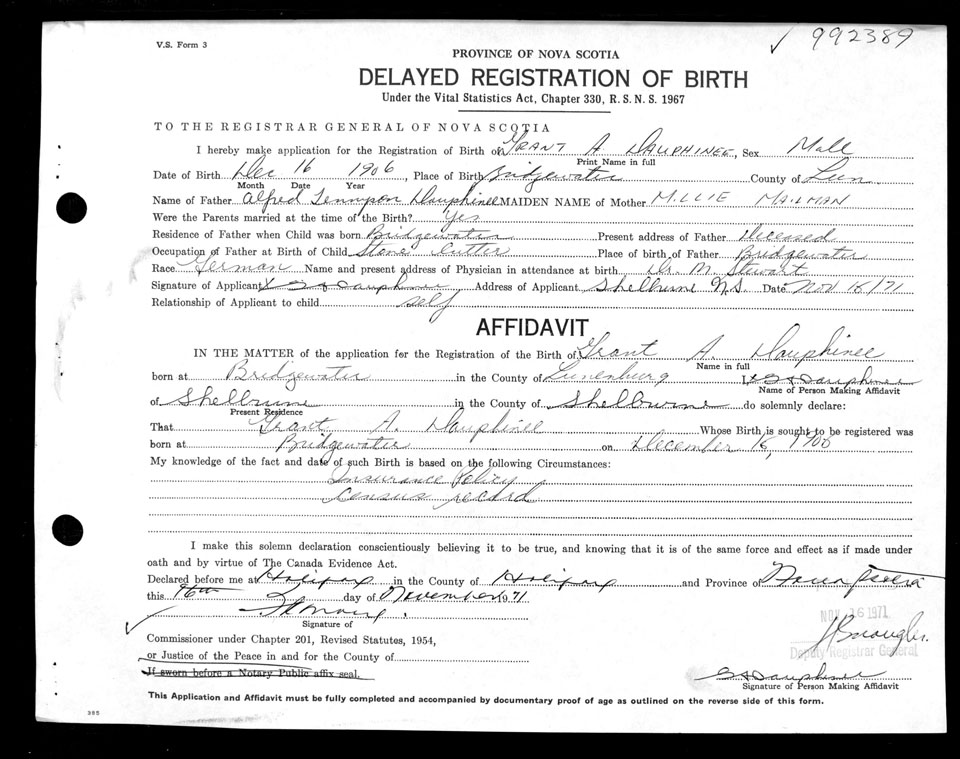 V.S. Form 3
992389
PROVINCE OF NOVA SCOTIA
DELAYED REGISTRATION OF BIRTH
Under the Vital Statistics Act, Chapter 330, R.S.N.S. 1967
TO THE REGISTRAR GENERAL OF NOVA SCOTIA
I hereby make application for the Registration of Birth of GRANT A DAUPHINEE, Sex Male
Print Name in full
Date of Birth Dec 16 1906, Place of Birth Bridgewater County of Lun
Month Date Year
Name of Father Alfred Tennyson Dauphinee MAIDEN NAME of Mother MILLIE MAILMAN
Were the Parents married at the time of the Birth? Yes
Residence of Father when Child was born Bridgewater Present address of Father Deceased
Occupation of Father at Birth of Child Stone Cutter Place of birth of Father Bridgewater
Race German Name and present address of Physician in attendance at birth Dr. M. Stewart
Signature of Applicant G A Dauphinee Address of Applicant Shelburne N.S. Date Nov 16/71
Relationship of Applicant to child self
AFFIDAVIT
IN THE MATTER of the application for the Registration of the Birth of Grant A. Dauphinee
Name in full
born at Bridgewater in the County of Lunenburg I, G A Dauphinee
Name of Person Making Affidavit
of Shelburne in the County of Shelburne do solemnly declare:
Present Residence
That Grant A. Dauphinee Whose Birth is sought to be registered was
born at Bridgewater on December 16, 1906
My knowledge of the fact and date of such Birth is based on the following Circumstances:
Insurance Policy
Census record
I make this solemn declaration conscientiously believing it to be true, and knowing that it is of the same force and effect as if made under
oath and by virtue of The Canada Evidence Act.
Declared before me at Halifax in the County of Halifax and Province of Nova Scotia
this 16th day of November 1971
Signature of
NOV 16 1971
Commissioner under Chapter 201, Revised Statutes, 1954,
Deputy Registrar General
or Justice of the Peace in and for the County of
If sworn before a Notary Public affix seal.
G A Dauphinee
Signature of Person Making Affidavit
This Application and Affidavit must be fully completed and accompanied by documentary proof of age as outlined on the reverse side of this form.
385